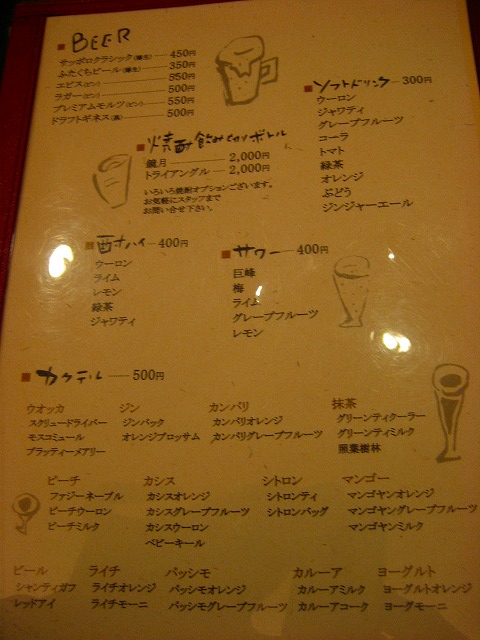 BEER
サッポロクラシック(樽生) 450円
ふたくちビール(樽生) 350円
エビス(ビン) 550円
ラガー(ビン) 500円
プレミアムモルツ(ビン) 550円
ドラフトギネス(黒) 500円
焼酎飲みきりボトル
鏡月 2,000円
トライアングル 2,000円
いろいろ焼酎オプションございます。
お気軽にスタッフまで
お問い合せ下さい。
ソフトドリンク 300円
ウーロン
ジャワティ
グレープフルーツ
コーラ
トマト
緑茶
オレンジ
ぶどう
ジンジャーエール
酎ハイ 400円
ウーロン
ライム
レモン
緑茶
ジャワティ
サワー 400円
巨峰
梅
ライム
グレープフルーツ
レモン
カクテル 500円
ウオッカ
スクリュードライバー
モスコミュール
ブラッティーメアリー
ジン
ジンバック
オレンジブロッサム
カンパリ
カンパリオレンジ
カンパリグレープフルーツ
抹茶
グリーンティクーラー
グリーンティミルク
照葉樹林
ピーチ
ファジーネーブル
ピーチウーロン
ピーチミルク
カシス
カシスオレンジ
カシスグレープフルーツ
カシスウーロン
ベビーキール
シトロン
シトロンティ
シトロンバッグ
マンゴー
マンゴヤンオレンジ
マンゴヤングレープフルーツ
マンゴヤンミルク
ビール
シャンティガフ
レッドアイ
ライチ
ライチオレンジ
ライチモーニ
パッシモ
パッシモオレンジ
パッシモグレープフルーツ
カルーア
カルーアミルク
カルーアコーク
ヨーグルト
ヨーグルトオレンジ
ヨーグモーニ